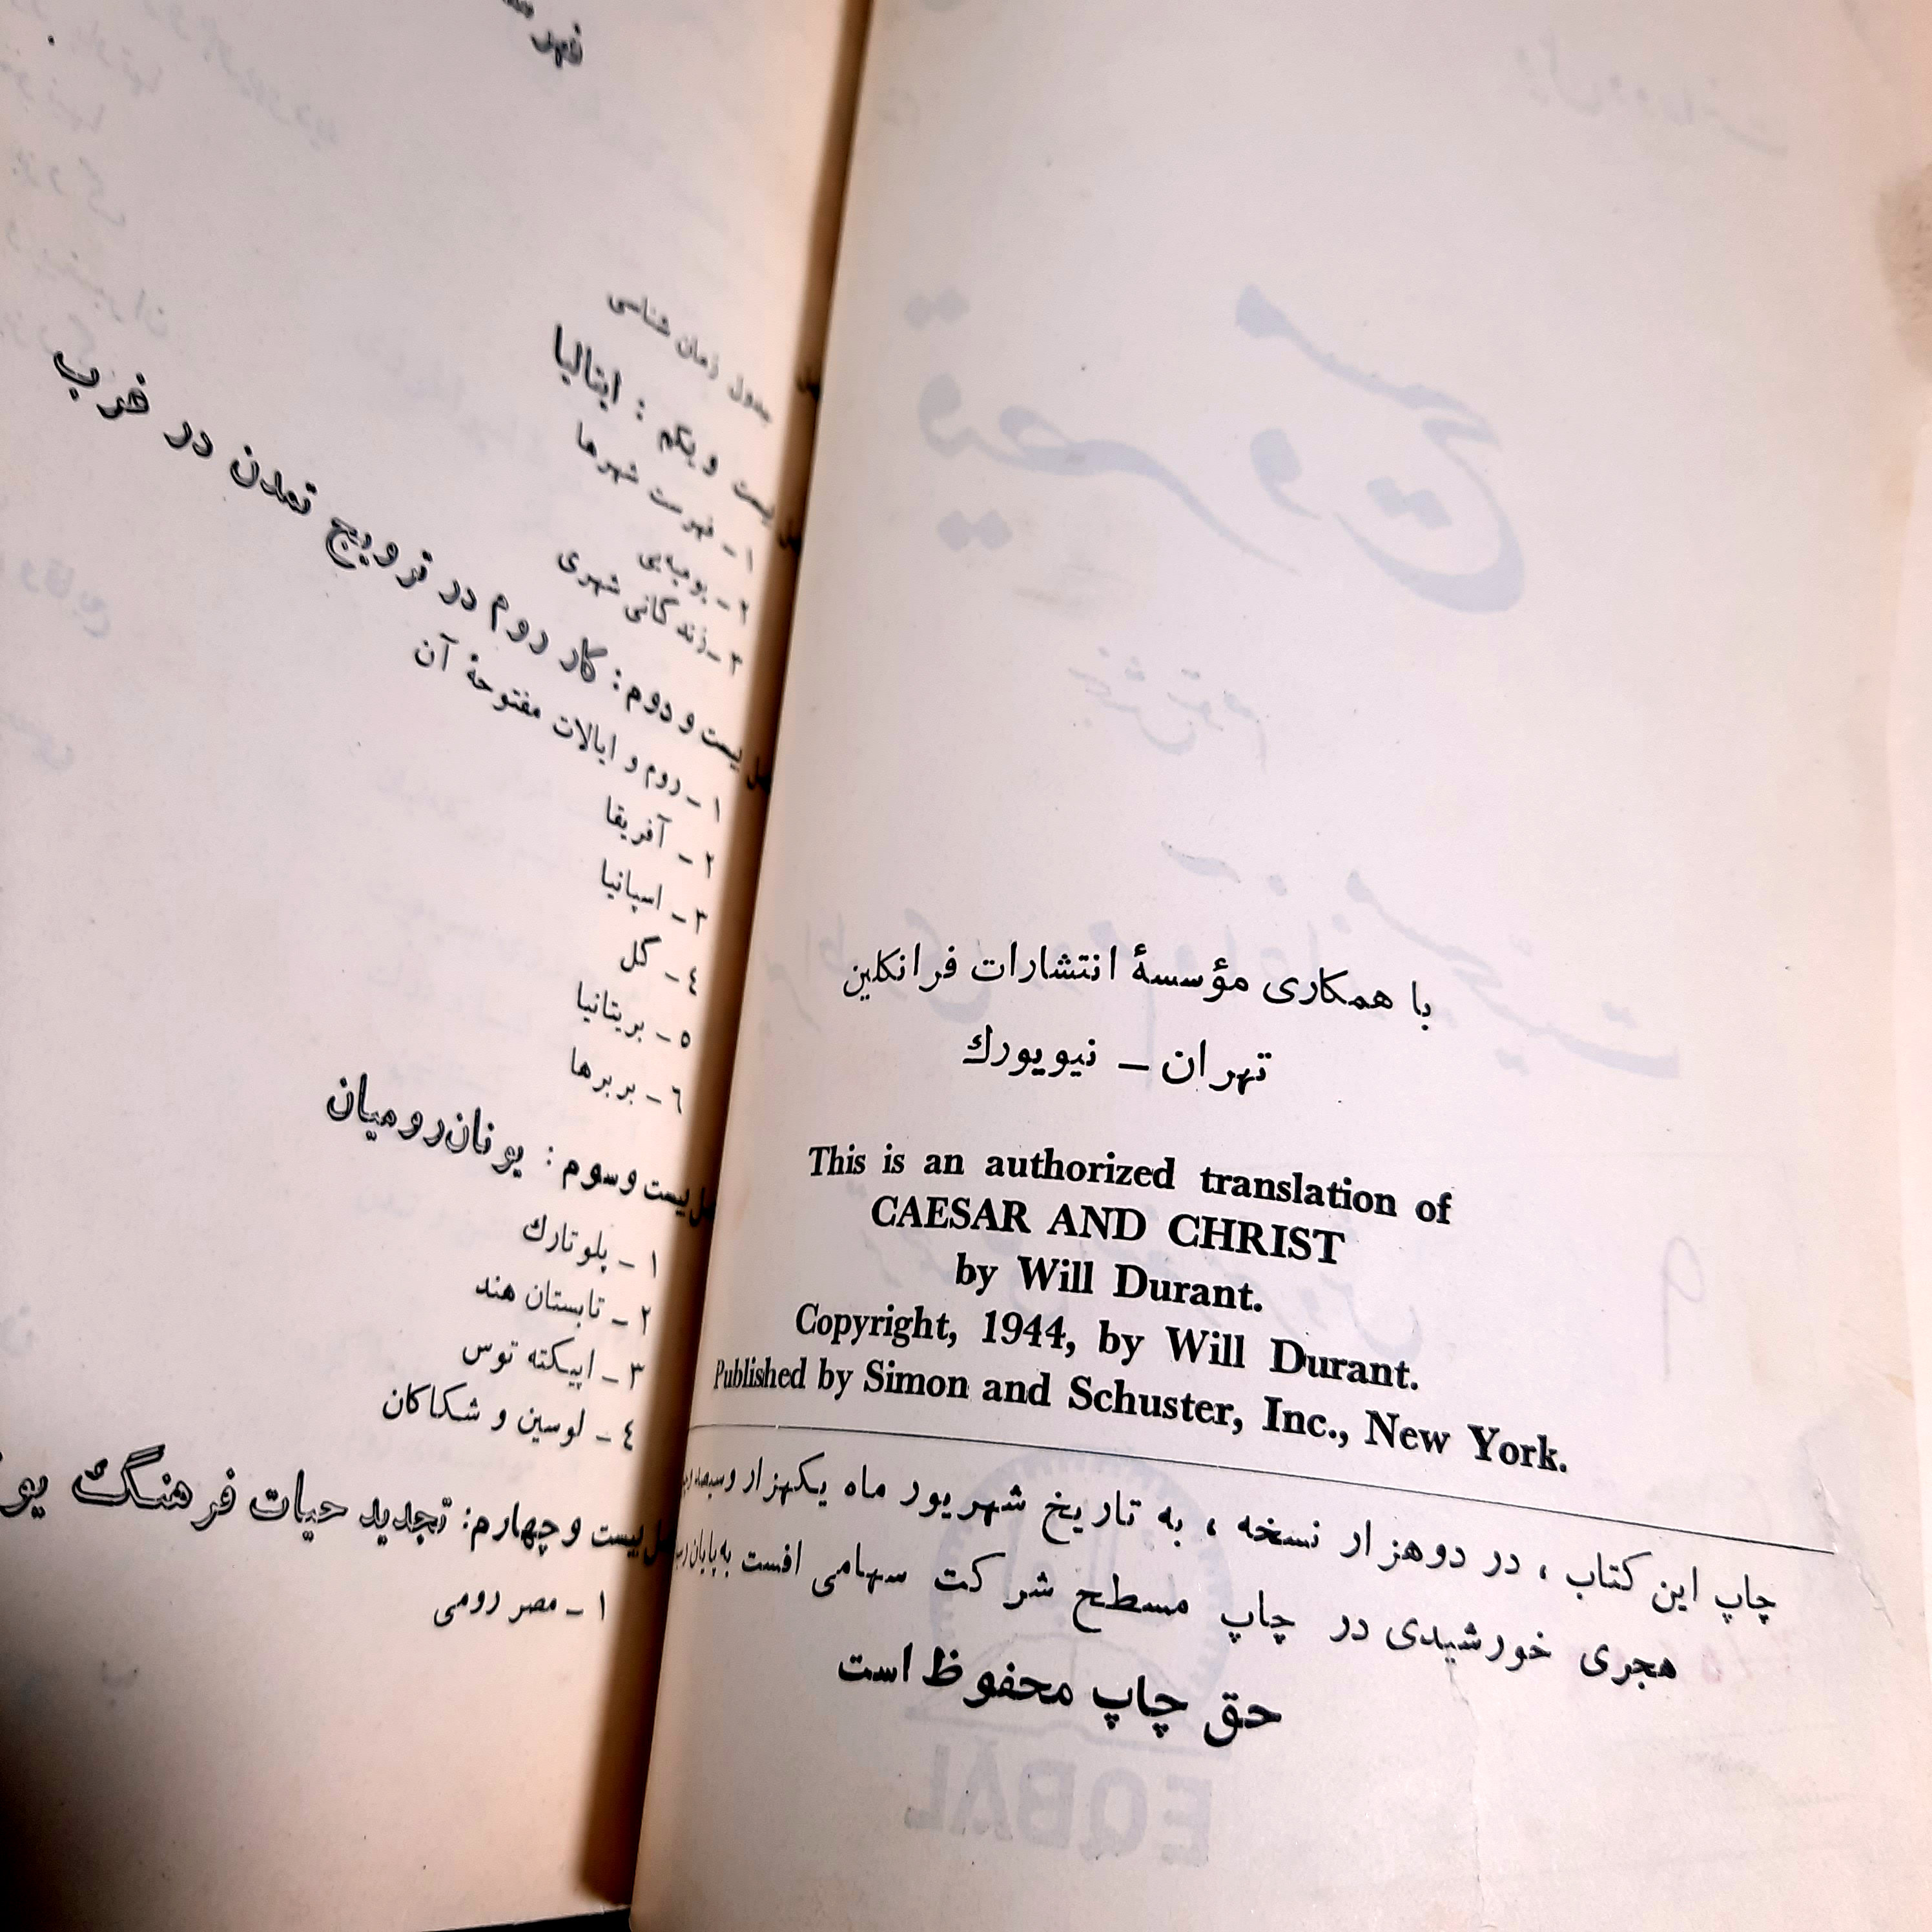 با همکاری مؤسسهٔ انتشارات فرانکلین
تهران – نیویورك
This is an authorized translation of
CAESAR AND CHRIST
by Will Durant.
Copyright, 1944, by Will Durant.
Published by Simon and Schuster, Inc., New York.
چاپ این کتاب ، در دوهزار نسخه ، به تاریخ شهریور ماه یکهزار
هجری خورشیدی در چاپ مسطح شرکت سهامی افست به پایان
حق چاپ محفوظ است
EQBAL
جدول زمان شناسی
ویکم : ایتالیا
۱ – فهرست شهرها
۲ – بومپه‌یی
۳ – زندگانی شهری
بیست و دوم : کار روم در ترویج تمدن در غرب
۱ – روم و ایالات مفتوحهٔ آن
۲ – آفریقا
۳ – اسپانیا
٤ – گل
٥ – بریتانیا
٦ – بربرها
بیست و سوم : یونان‌رومیان
۱ – پلوتارك
۲ – تابستان هند
۳ – اپیکته توس
٤ – لوسین و شکاکان
بیست و چهارم : تجدید حیات فرهنگ
۱ – مصر رومی